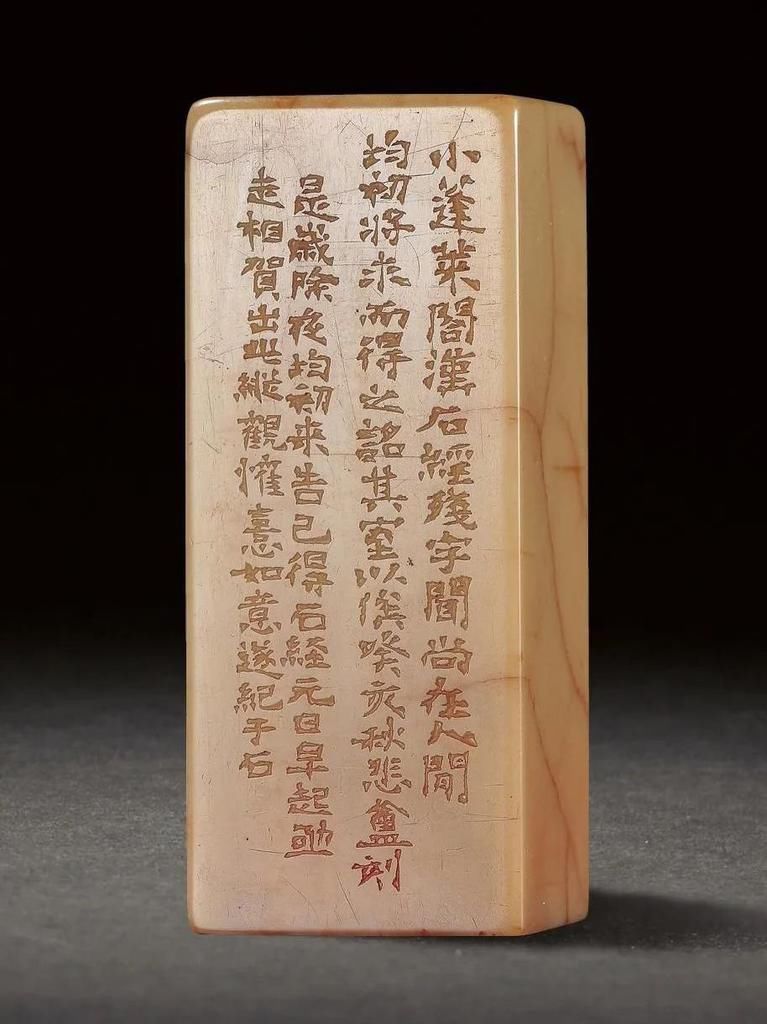 小蓬萊閣漢石經殘字聞尚在人間
均初將求而得之詺其室以俟癸亥秋悲盦刻
是歲除夜均初來告已得石經元日早起亟
走相賀出此縱觀懽憙如意遂紀于石